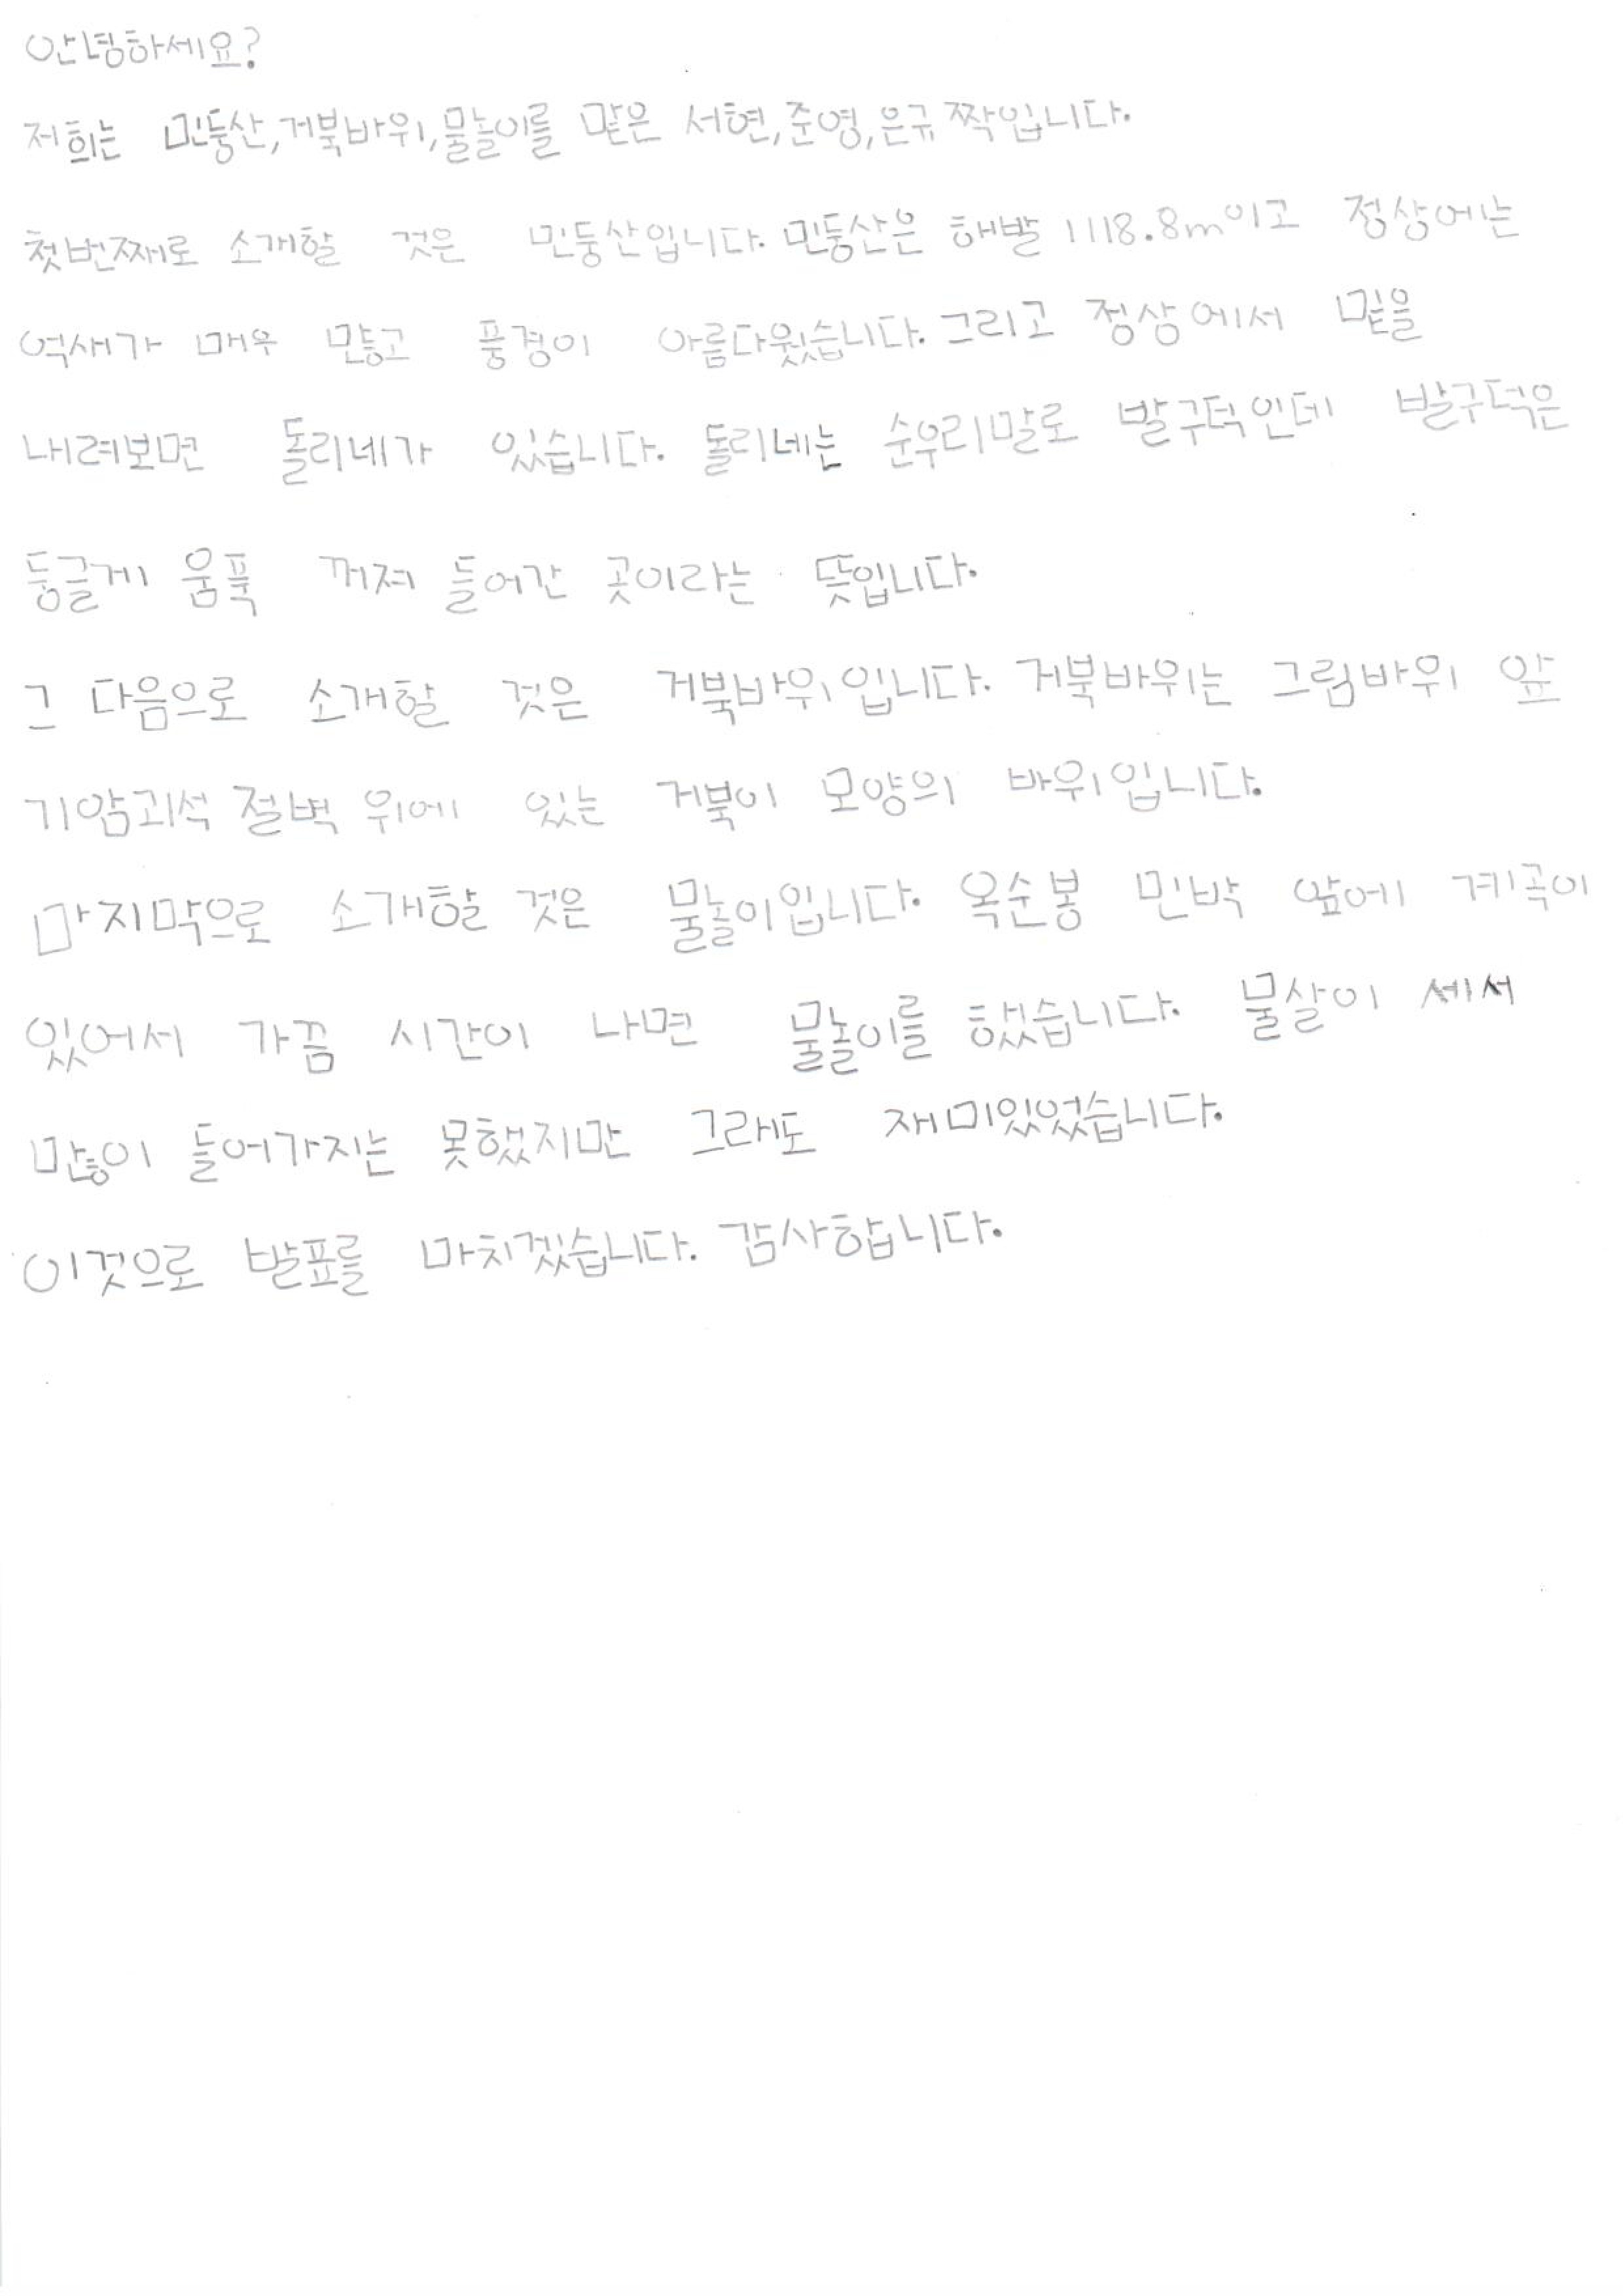 안녕하세요?
저희는 민둥산,거북바위,물놀이를 맡은 서현,준영,은규 짝입니다.
첫번째로 소개할 것은 민둥산입니다. 민둥산은 해발 1118.8m이고 정상에는
억새가 매우 많고 풍경이 아름다웠습니다. 그리고 정상에서 밑을
내려보면 돌리네가 있습니다. 돌리네는 순우리말로 발구덕인데 발구덕은
둥글게 움푹 꺼져 들어간 곳이라는 뜻입니다.
그 다음으로 소개할 것은 거북바위입니다. 거북바위는 그림바위 앞
기암괴석 절벽 위에 있는 거북이 모양의 바위입니다.
마지막으로 소개할 것은 물놀이입니다. 옥순봉 민박 앞에 계곡이
있어서 가끔 시간이 나면 물놀이를 했습니다. 물살이 세서
많이 들어가지는 못했지만 그래도 재미있었습니다.
이것으로 발표를 마치겠습니다. 감사합니다.